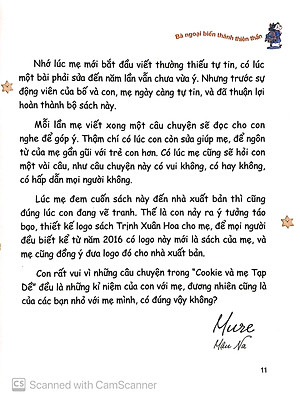 Bà ngoại biến thành thiên thần
Nhớ lúc mẹ mới bắt đầu viết thường thiếu tự tin, có lúc
một bài phải sửa đến năm lần vẫn chưa vừa ý. Nhưng trước sự
động viên của bố và con, mẹ ngày càng tự tin, và đã thuận lợi
hoàn thành bộ sách này.
Mỗi lần mẹ viết xong một câu chuyện sẽ đọc cho con
nghe để góp ý. Thậm chí có lúc con còn sửa giúp mẹ, để ngôn
từ của mẹ gần gũi với trẻ con hơn. Có lúc mẹ cũng sẽ hỏi con
một vài câu, như câu chuyện này có vui không, có hay không,
có hấp dẫn mọi người không.
Lúc mẹ đem cuốn sách này đến nhà xuất bản thì cũng
đúng lúc con đang vẽ tranh. Thế là con nảy ra ý tưởng táo
bạo, thiết kế logo sách Trịnh Xuân Hoa cho mẹ, để mọi người
đều biết kể từ năm 2016 có logo này mới là sách của mẹ, và
mẹ cũng đồng ý đưa logo đó cho nhà xuất bản.
Con rất vui vì những câu chuyện trong "Cookie và mẹ Tạp
Dề" đều là những kỉ niệm của con với mẹ, đương nhiên cũng là
của các bạn nhỏ với mẹ mình, có đúng vậy không?
Mure
Mâu Na
11
CS Scanned with CamScanner